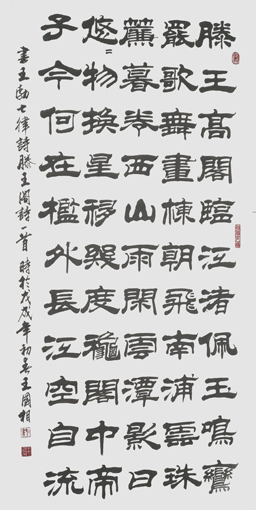 滕王高閣臨江渚佩玉鳴鸞
罷歌舞畫棟朝飛南浦雲珠
簾暮卷西山雨閑雲潭影日
悠々物換星移幾度龝閣中帝
子今何在檻外長江空自流
書王勃七律詩滕王閣詩一首 時於戊戌年初春王國相